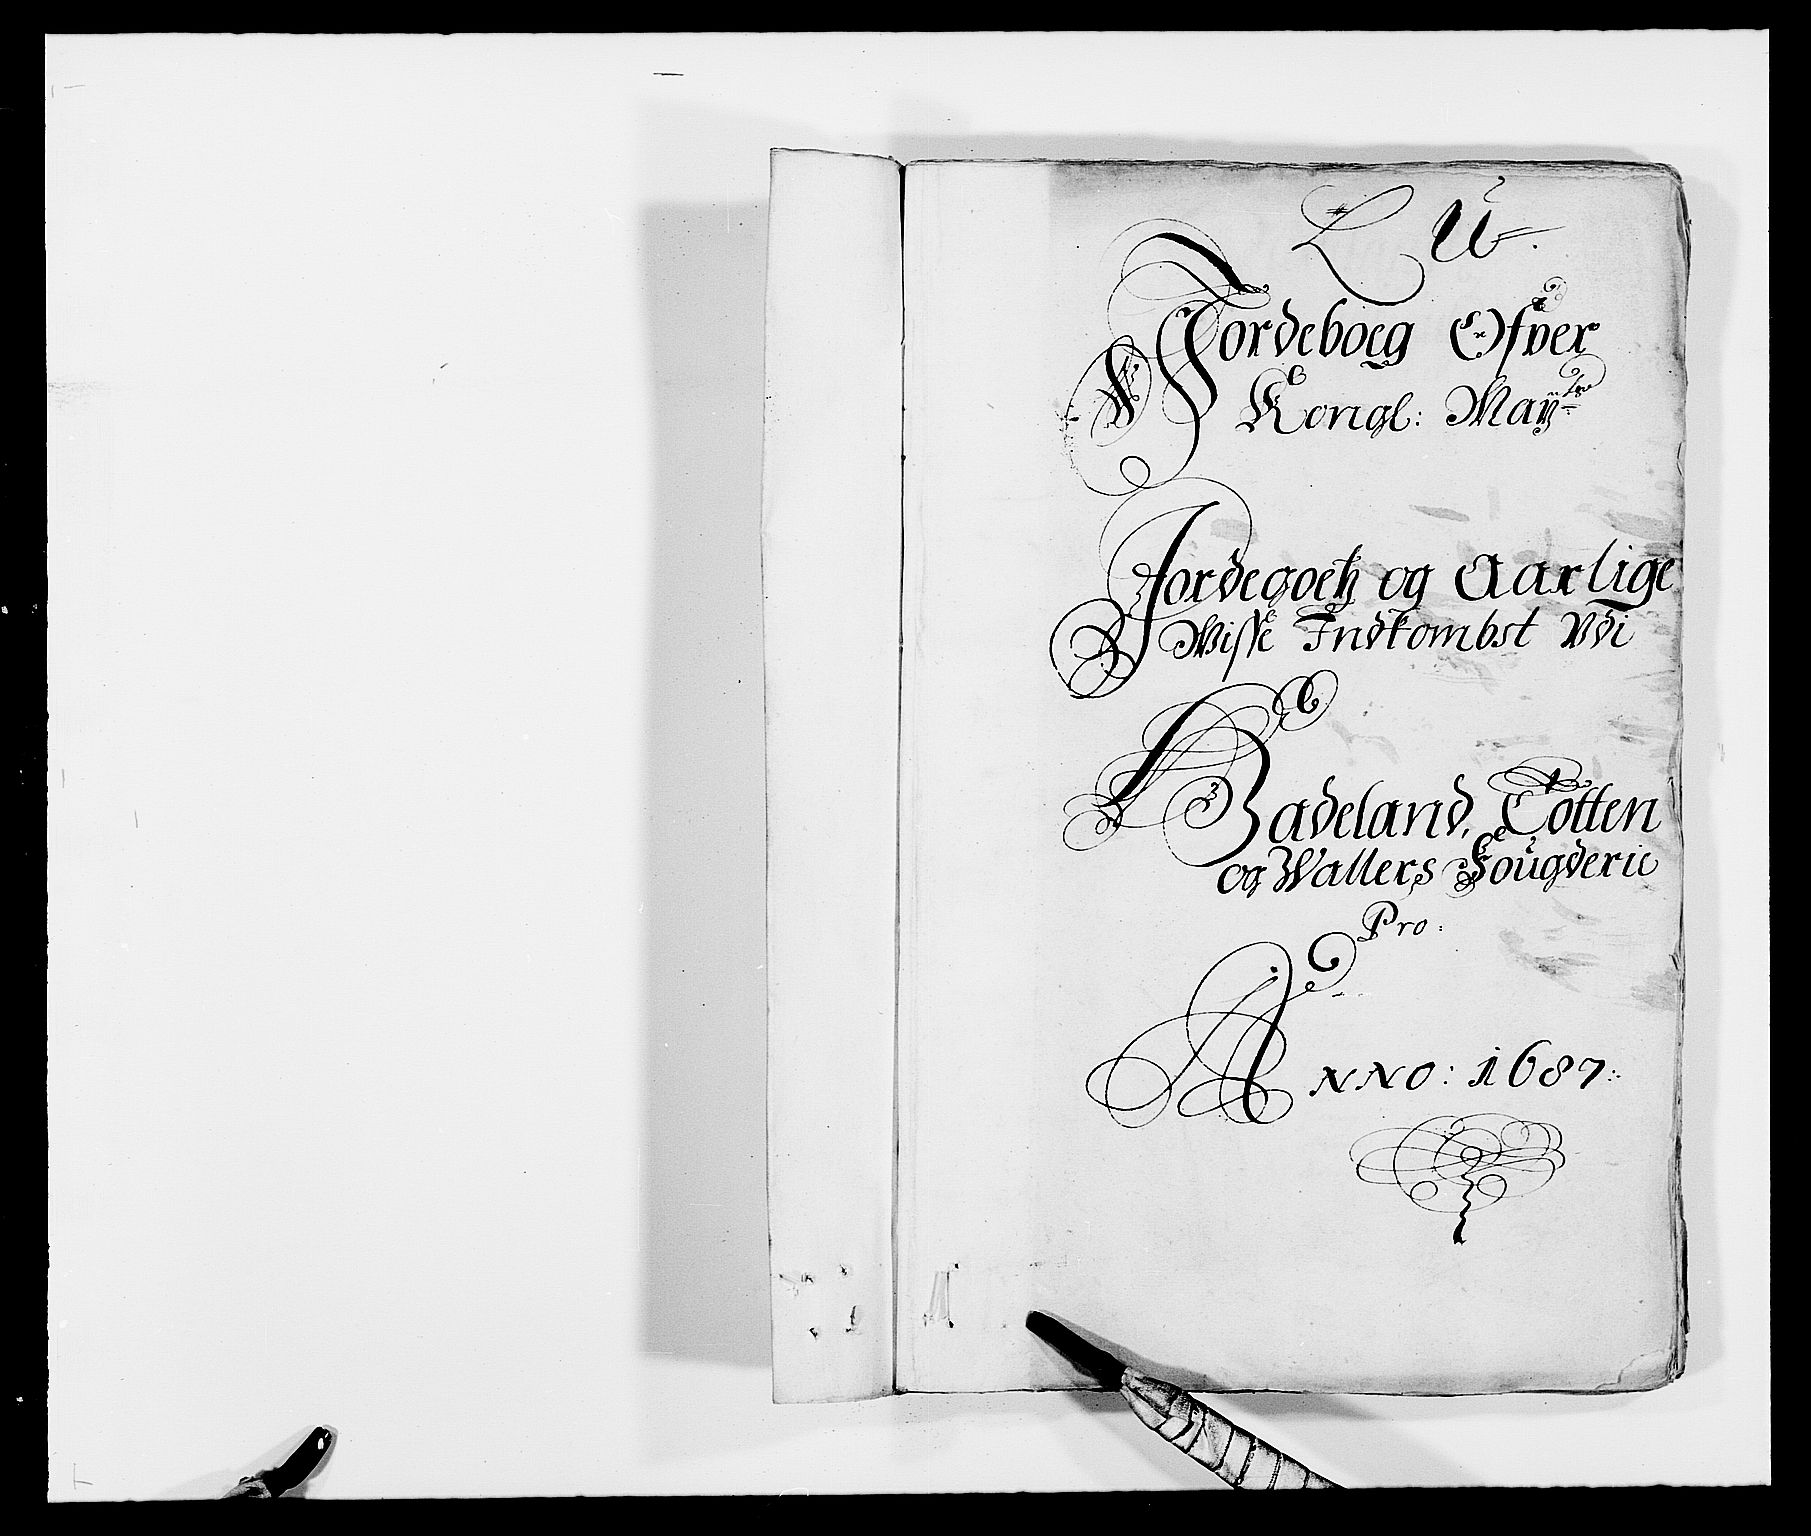 L U.
Jordeboeg Ofver
Kongl: Maÿ:tz
Jordegoetz og Aarlige
Wisse Indkombst Vdi
Hadeland, Totten
og Wallers Fougderie
Pro:
ANNO: 1687: